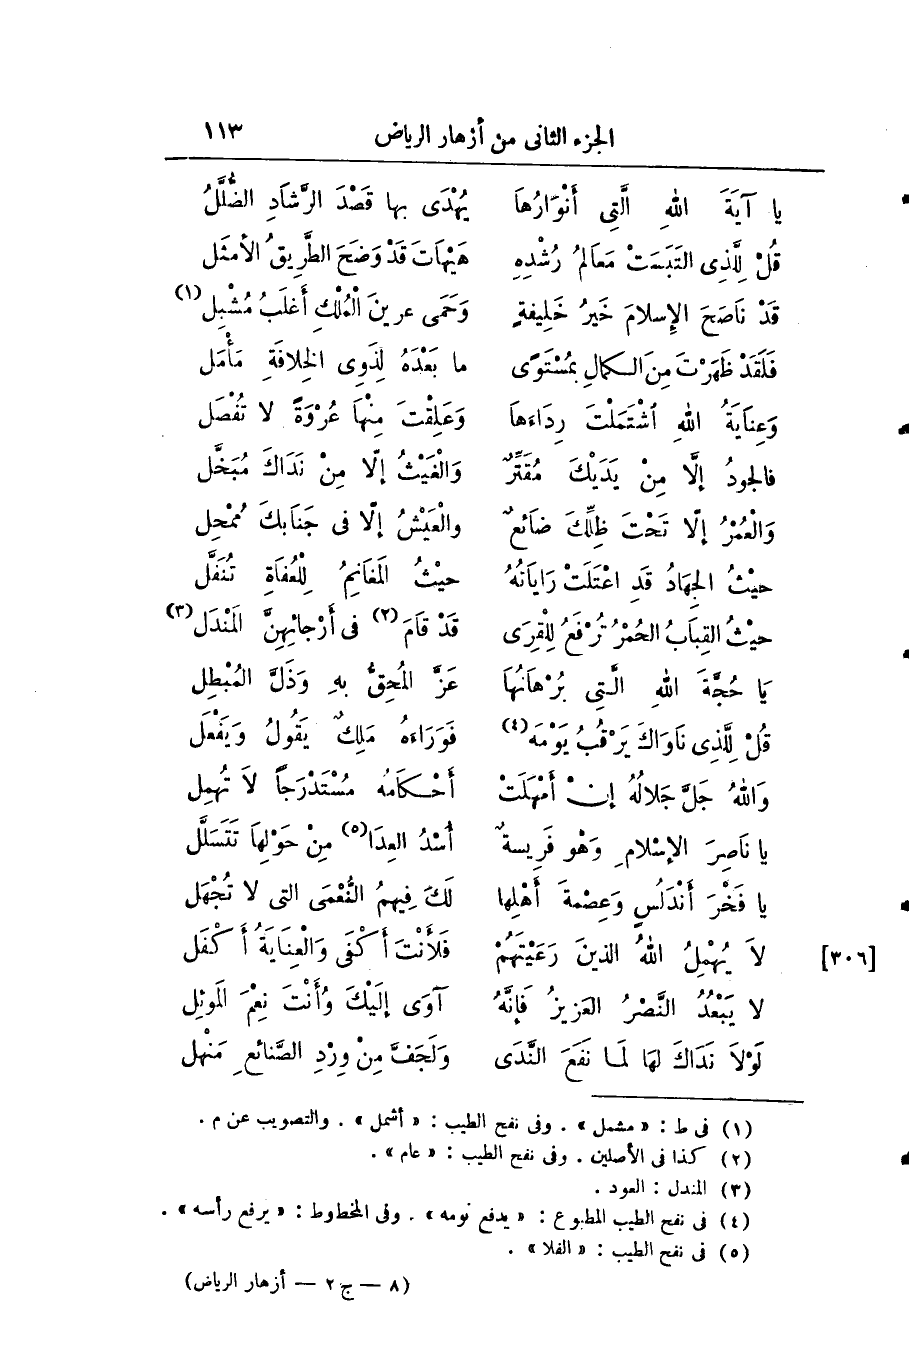 الجزء الثانى من أزهار الرياض ١١٣
يا آيَةَ اللهِ الَّتِى أَنْوَارُهَا يُهْدَى بها قَصْدَ الرَّشَادِ الضُّلَّلُ
قُلْ لِلَّذِى التَبَسَتْ مَعَالمُ رُشْدِهِ هَيْهَاتَ قَدْ وَضَحَ الطَّرِيقُ الأمْثَل
قَدْ نَاصَحَ الإسلامَ خَيرُ خَلِيفةٍ وَحَمَى عرينَ الْمُلْكِ أَغلَبُ مُشْبِل(١)
فَلَقَدْ ظَهَرْتَ مِنَ الكمالِ بمُسْتَوًى ما بَعْدَهُ لِذَوِى الخِلافَةِ مَأْمَل
وَعِنَايَةُ اللهِ اشْتَمَلْتَ رِدَاءَهَا وَعَلِقْتَ مِنْهَا عُرْوَةً لا تُفْصَل
فالجودُ إلَّا مِنْ يَدَيْكَ مُقَتَّرٌ وَالْغَيْثُ إلّا مِنْ نَدَاكَ مُبَخَّل
وَالْعُمْرُ إلّا تَحْتَ ظِلِّكَ ضَائعٌ والْعَيْشُ إلّا فى جَنَابكَ مُمْحِل
حيْثُ الجِهَادُ قَدِ اعْتَلَتْ رَايَاتُهُ حيْثُ المَغَانِمُ لِلْعُفَاةِ تُنَفَّل
حيْثُ القِبَابُ الحُمْرُ تُرْفَعُ لِلْقِرَى قَدْ قَامَ(٢) فى أَرْجائِهِنَّ المَنْدَل(٣)
يَا حُجَّةَ اللهِ الَّتِى بُرْهَانُهَا عَزَّ المُحِقُّ بهِ وَذَلَّ المُبْطِل
قُلْ لِلَّذِى نَاوَاكَ يَرْقُبُ يَوْمَه(٤) فَوَرَاءَهُ مَلِكٌ يَقُولُ وَيَفْعَل
وَاللهُ جَلَّ جَلالُهُ إنْ أَمْهَلَتْ أَحْكَامُه مُسْتَدْرَجاً لاَ تُهمِل
يا نَاصِرَ الإسْلامِ وَهْو فَرِيسةٌ أسْدُ العِدَا(٥) مِنْ حَوْلِها تَتَسَلَّل
يا فَخْرَ أَنْدَلُسٍ وَعِصْمةَ أَهْلِها لَكَ فِيهمُ النُّعْمَى التى لا تُجْهَل
لاَ يُهْمِلُ اللهُ الذينَ رَعَيْتَهُمْ فَلَأَنْتَ أَكْفَى وَالْعِنَايَةُ أَكْفَل [٣٠٦]
لا يَبْعُدُ النَّصْرُ العَزيزُ فَإنَّهُ آوَى إلَيْكَ وَأَنْتَ نِعْمَ المَوْئِل
لَوْلاَ نَدَاكَ لهَا لَمَا نَفَعَ النَّدَى وَلَجَفَّ مِنْ وِرْدِ الصَّنائعِ مَنْهل
(١) فى ط : « مشمل » . وفى نفح الطيب : « أشمل » . والتصويب عن م .
(٢) كذا فى الأصلين . وفى نفح الطيب : « عام » .
(٣) المندل : العود .
(٤) فى نفح الطيب المطبوع : « يدفع نومه » . وفى المخطوط : « يرفع رأسه » .
(٥) فى نفح الطيب : « الفلا » .
(٨ — ج ٢ — أزهار الرياض)